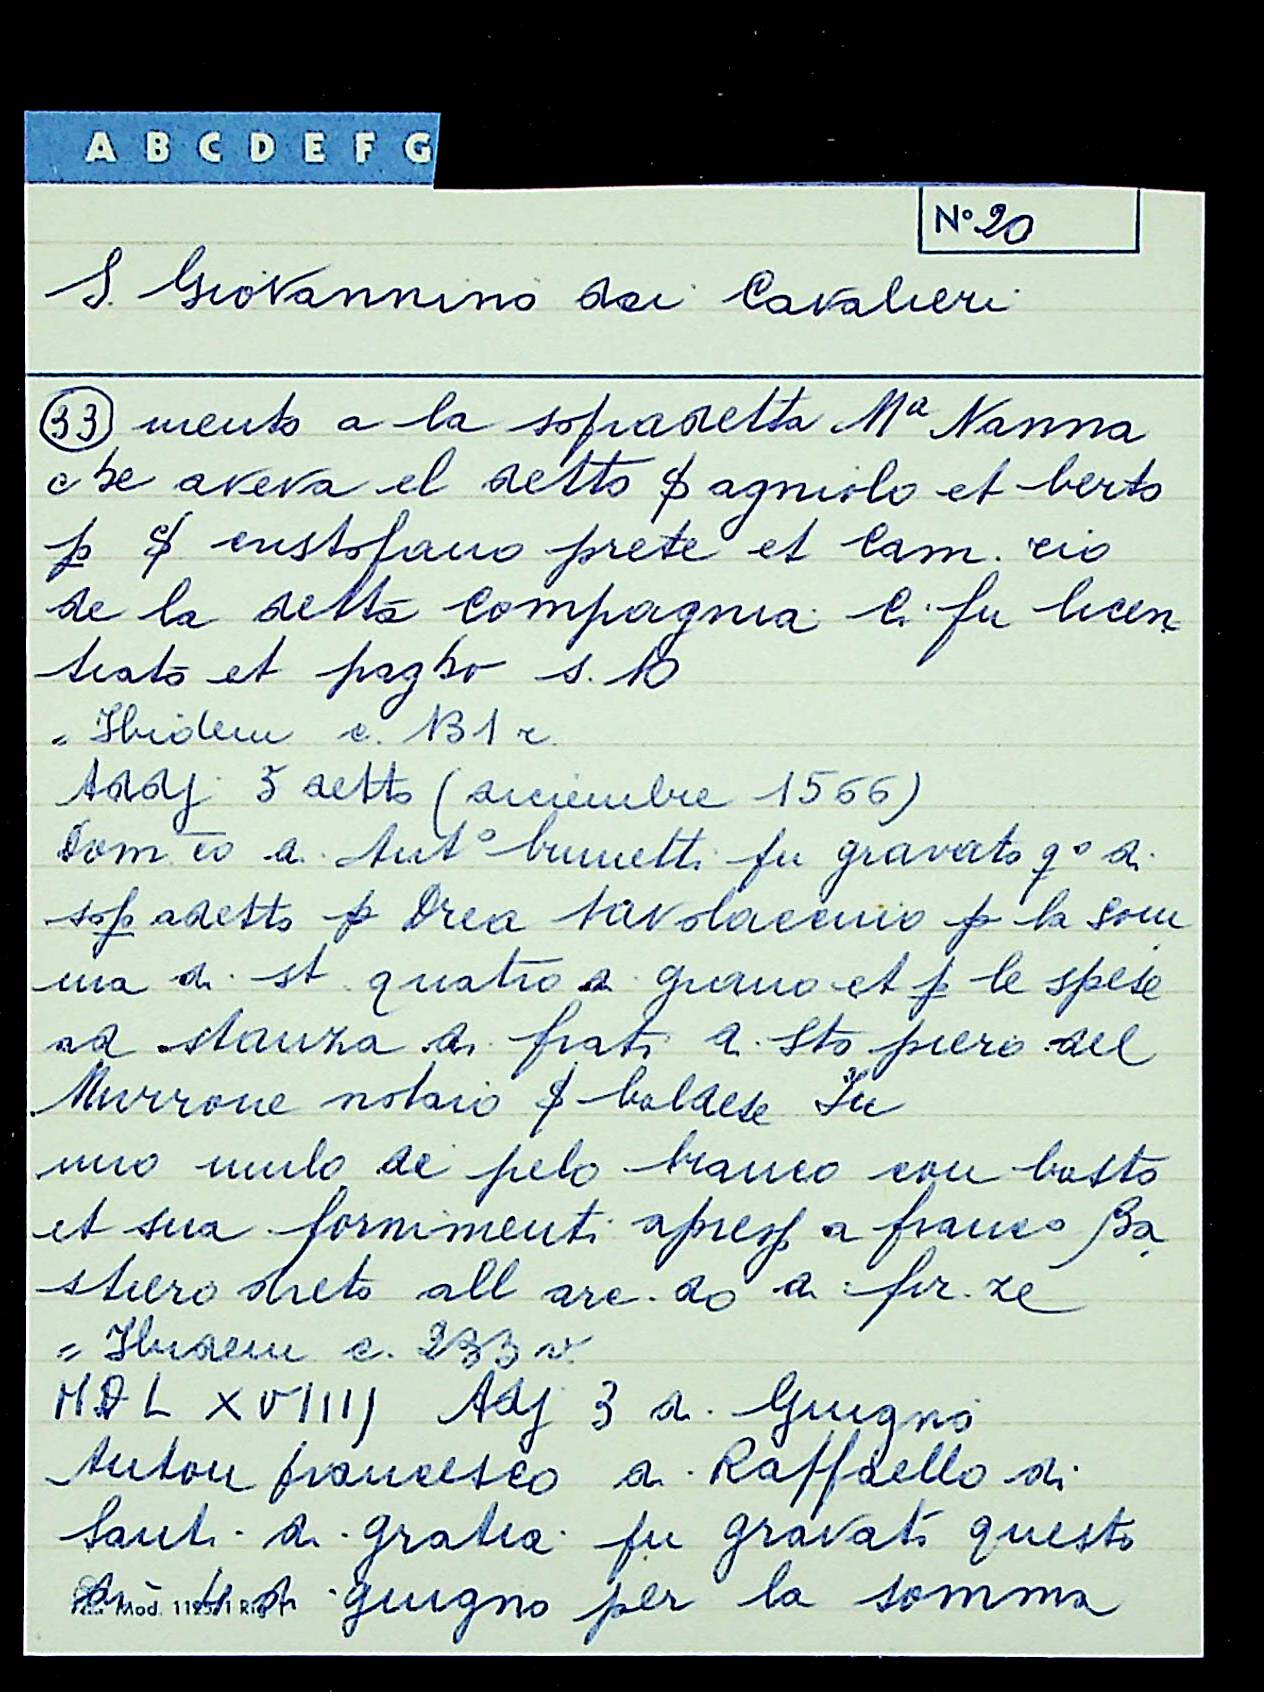 A B C D E F G
N° 20
S. Giovannino dei Cavalieri
33 mento a la sopradetta Mª Nanna
che aveva el detto $ agniolo et berto
p $ cristofano prete et Cam. rio
de la detta Compagnia e. fu licen
tiato et pagho s. 10
" Ibidem c. 131 r.
Addj 5 detto (diciembre 1566)
Dom. co di Ant° brunetti fu gravato q° di
sopadetto p Drea tavolaccino p la som
ma di st. quatro di grano et p le spese
ad stanza di frati di Sto piero del
Murrone notaio $ baldese In
uno mulo de pelo branco con basto
et sua fornimenti apresso a franco Ba
stiero dreto all arc. do di fir. ze
" Ibidem c. 233 v.
MDLXVIIII Adj 3 di Giugno
Anton francesco di Raffaello di
Santi di gratia fu gravato questo
di 4 di giugno per la somma